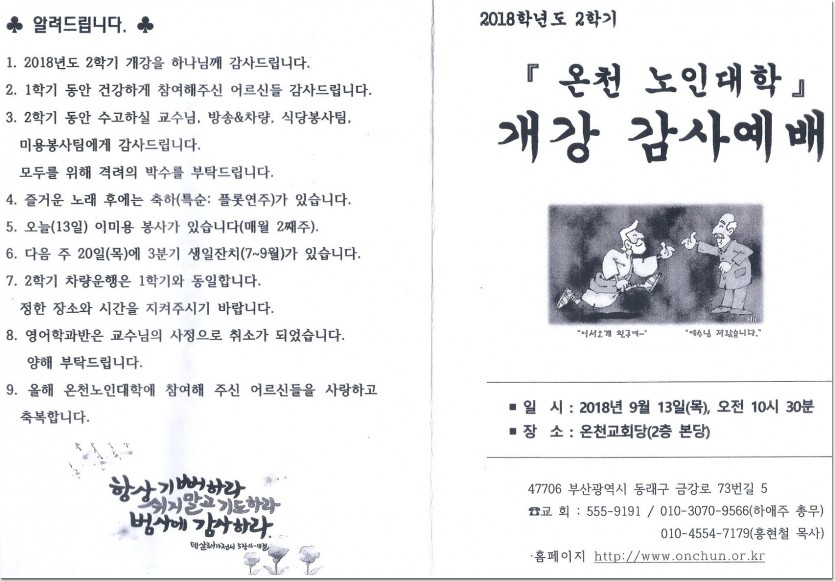 ♣ 알려드립니다. ♣
1. 2018년도 2학기 개강을 하나님께 감사드립니다.
2. 1학기 동안 건강하게 참여해주신 어르신들 감사드립니다.
3. 2학기 동안 수고하실 교수님, 방송&차량, 식당봉사팀,
미용봉사팀에게 감사드립니다.
모두를 위해 격려의 박수를 부탁드립니다.
4. 즐거운 노래 후에는 축하(특순: 플룻연주)가 있습니다.
5. 오늘(13일) 이미용 봉사가 있습니다(매월 2째주).
6. 다음 주 20일(목)에 3분기 생일잔치(7~9월)가 있습니다.
7. 2학기 차량운행은 1학기와 동일합니다.
정한 장소와 시간을 지켜주시기 바랍니다.
8. 영어학과반은 교수님의 사정으로 취소가 되었습니다.
양해 부탁드립니다.
9. 올해 온천노인대학에 참여해 주신 어르신들을 사랑하고
축복합니다.
항상 기뻐하라
쉬지 말고 기도하라
범사에 감사하라.
데살로니가전서 5장16-18절
2018학년도 2학기
『 온천 노인대학 』
개강 감사예배
"어서오게 친구여~"
"예수님 저 왔습니다."
■ 일 시 : 2018년 9월 13일(목), 오전 10시 30분
■ 장 소 : 온천교회당(2층 본당)
47706 부산광역시 동래구 금강로 73번길 5
☎교 회 : 555-9191 / 010-3070-9566(하애주 총무)
010-4554-7179(홍현철 목사)
·홈페이지 http://www.onchun.or.kr